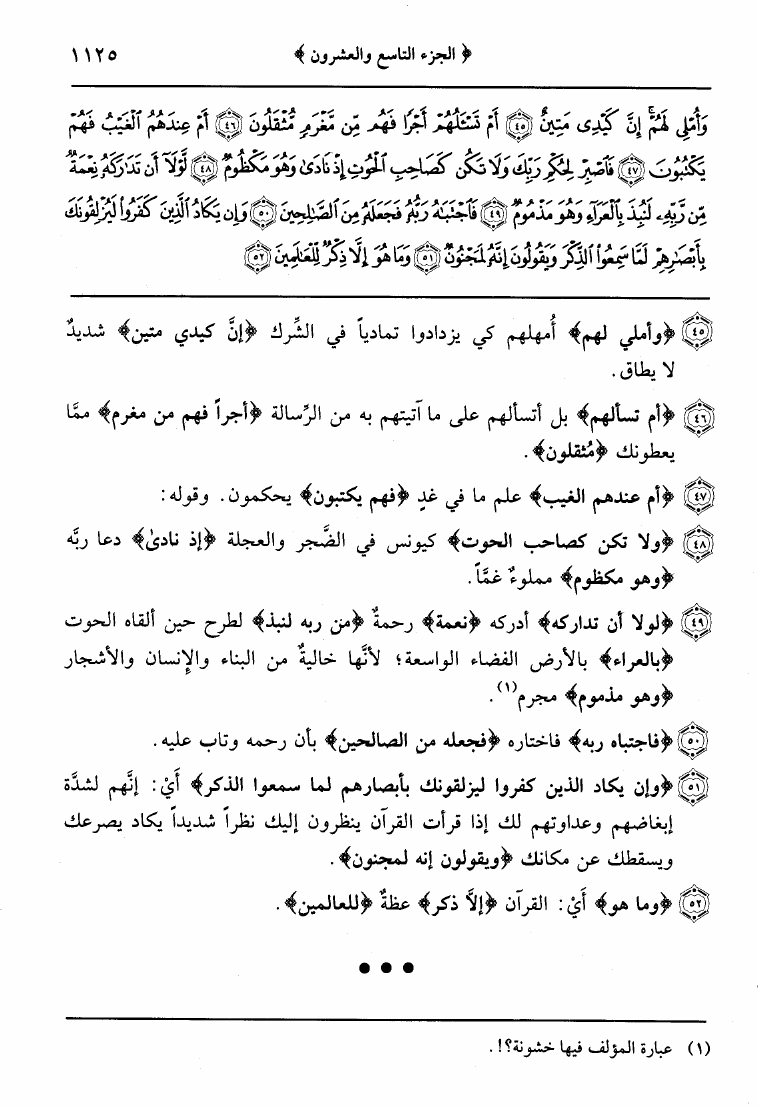 ﴿ الجزء التاسع والعشرون ﴾ ١١٢٥
وَأُمْلِى لَهُمْ إِنَّ كَيْدِى مَتِينٌ ٤٥ أَمْ تَسْـَٔلُهُمْ أَجْرًا فَهُم مِّن مَّغْرَمٍ مُّثْقَلُونَ ٤٦ أَمْ عِندَهُمُ ٱلْغَيْبُ فَهُمْ
يَكْتُبُونَ ٤٧ فَٱصْبِرْ لِحُكْمِ رَبِّكَ وَلَا تَكُن كَصَاحِبِ ٱلْحُوتِ إِذْ نَادَىٰ وَهُوَ مَكْظُومٌ ٤٨ لَّوْلَآ أَن تَدَٰرَكَهُۥ نِعْمَةٌ
مِّن رَّبِّهِۦ لَنُبِذَ بِٱلْعَرَآءِ وَهُوَ مَذْمُومٌ ٤٩ فَٱجْتَبَٰهُ رَبُّهُۥ فَجَعَلَهُۥ مِنَ ٱلصَّٰلِحِينَ ٥٠ وَإِن يَكَادُ ٱلَّذِينَ كَفَرُوا۟ لَيُزْلِقُونَكَ
بِأَبْصَٰرِهِمْ لَمَّا سَمِعُوا۟ ٱلذِّكْرَ وَيَقُولُونَ إِنَّهُۥ لَمَجْنُونٌ ٥١ وَمَا هُوَ إِلَّا ذِكْرٌ لِّلْعَٰلَمِينَ ٥٢
٤٥ ﴿وأملي لهم﴾ أُمهلهم كي يزدادوا تمادياً في الشِّرك ﴿إنَّ كيدي متين﴾ شديدٌ
لا يطاق.
٤٦ ﴿أم تسألهم﴾ بل أتسألهم على ما آتيتهم به من الرِّسالة ﴿أجراً فهم من مغرم﴾ ممَّا
يعطونك ﴿مُثقلون﴾.
٤٧ ﴿أم عندهم الغيب﴾ علم ما في غدٍ ﴿فهم يكتبون﴾ يحكمون. وقوله:
٤٨ ﴿ولا تكن كصاحب الحوت﴾ كيونس في الضَّجر والعجلة ﴿إذ نادىٰ﴾ دعا ربَّه
﴿وهو مكظوم﴾ مملوءٌ غمَّاً.
٤٩ ﴿لولا أن تداركه﴾ أدركه ﴿نعمة﴾ رحمةٌ ﴿من ربه لنبذ﴾ لطرح حين ألقاه الحوت
﴿بالعراء﴾ بالأرض الفضاء الواسعة؛ لأنَّها خاليةٌ من البناء والإنسان والأشجار
﴿وهو مذموم﴾ مجرم(١).
٥٠ ﴿فاجتباه ربه﴾ فاختاره ﴿فجعله من الصالحين﴾ بأن رحمه وتاب عليه.
٥١ ﴿وإن يكاد الذين كفروا ليزلقونك بأبصارهم لما سمعوا الذكر﴾ أيْ: إنَّهم لشدَّة
إبغاضهم وعداوتهم لك إذا قرأت القرآن ينظرون إليك نظراً شديداً يكاد يصرعك
ويسقطك عن مكانك ﴿ويقولون إنه لمجنون﴾.
٥٢ ﴿وما هو﴾ أيْ: القرآن ﴿إلاَّ ذكر﴾ عظةٌ ﴿للعالمين﴾.
● ● ●
(١) عبارة المؤلف فيها خشونة؟!.